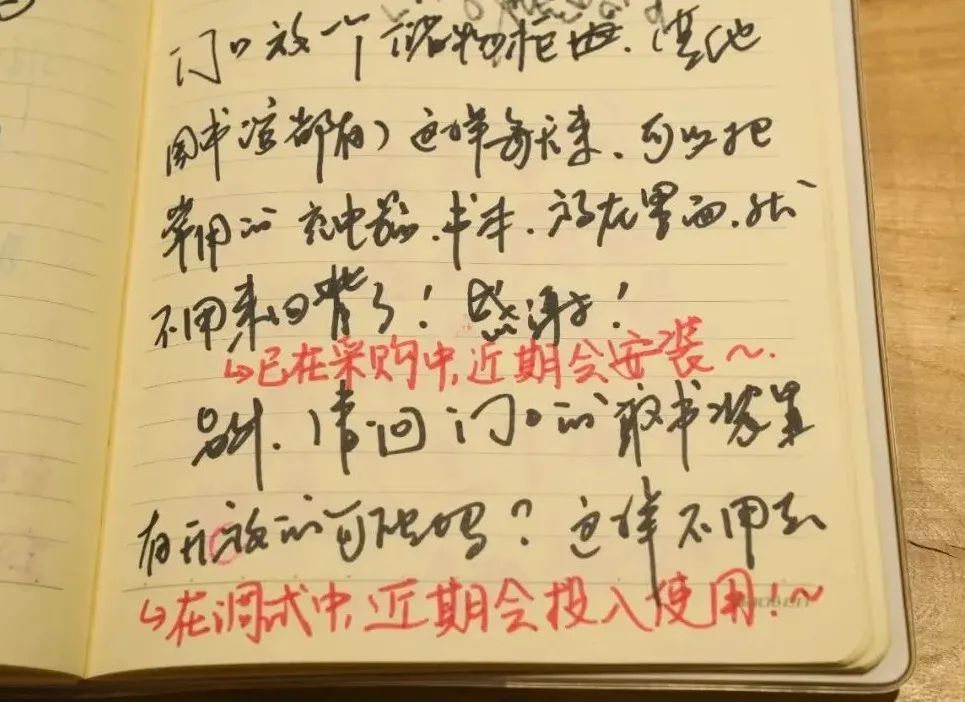 门口放个储物柜吗.其他
图书馆都有)这样每天来、可以把
常用的充电器、书本、放在里面.就
不用来回背了!感谢!
↳已在采购中,近期会安装~.
另外.请问门口的取书装置
有开放的可能吗?这样不用去
↳在调试中,近期会投入使用!~